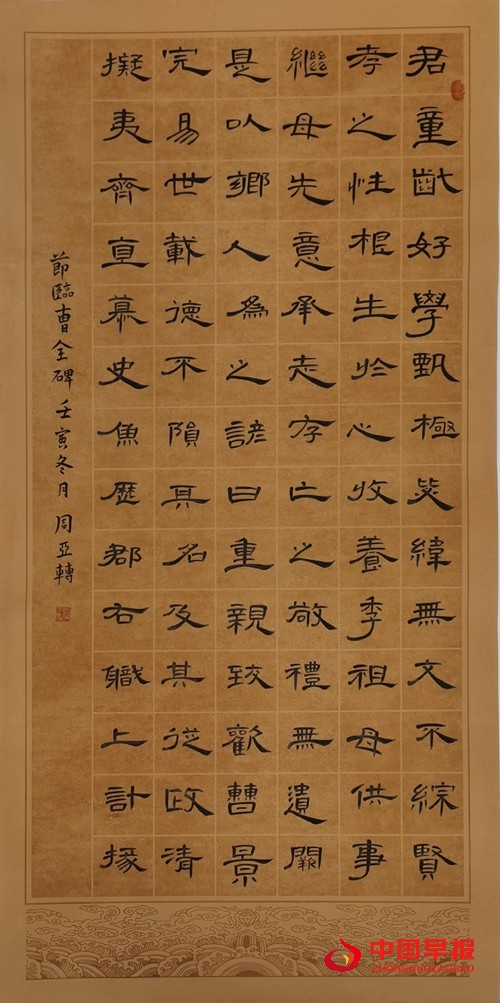 君童齔好學甄極毖緯無文不綜賢
孝之性根生於心收養季祖母供事
繼母先意承志存亡之敬禮無遺闕
是以鄉人為之諺曰重親致歡曹景
完易世載德不隕其名及其從政清
擬夷齊直慕史魚歷郡右職上計掾
節臨曹全碑 壬寅冬月 周亞轉
中国早报
ZHONGGUOZAOBAO